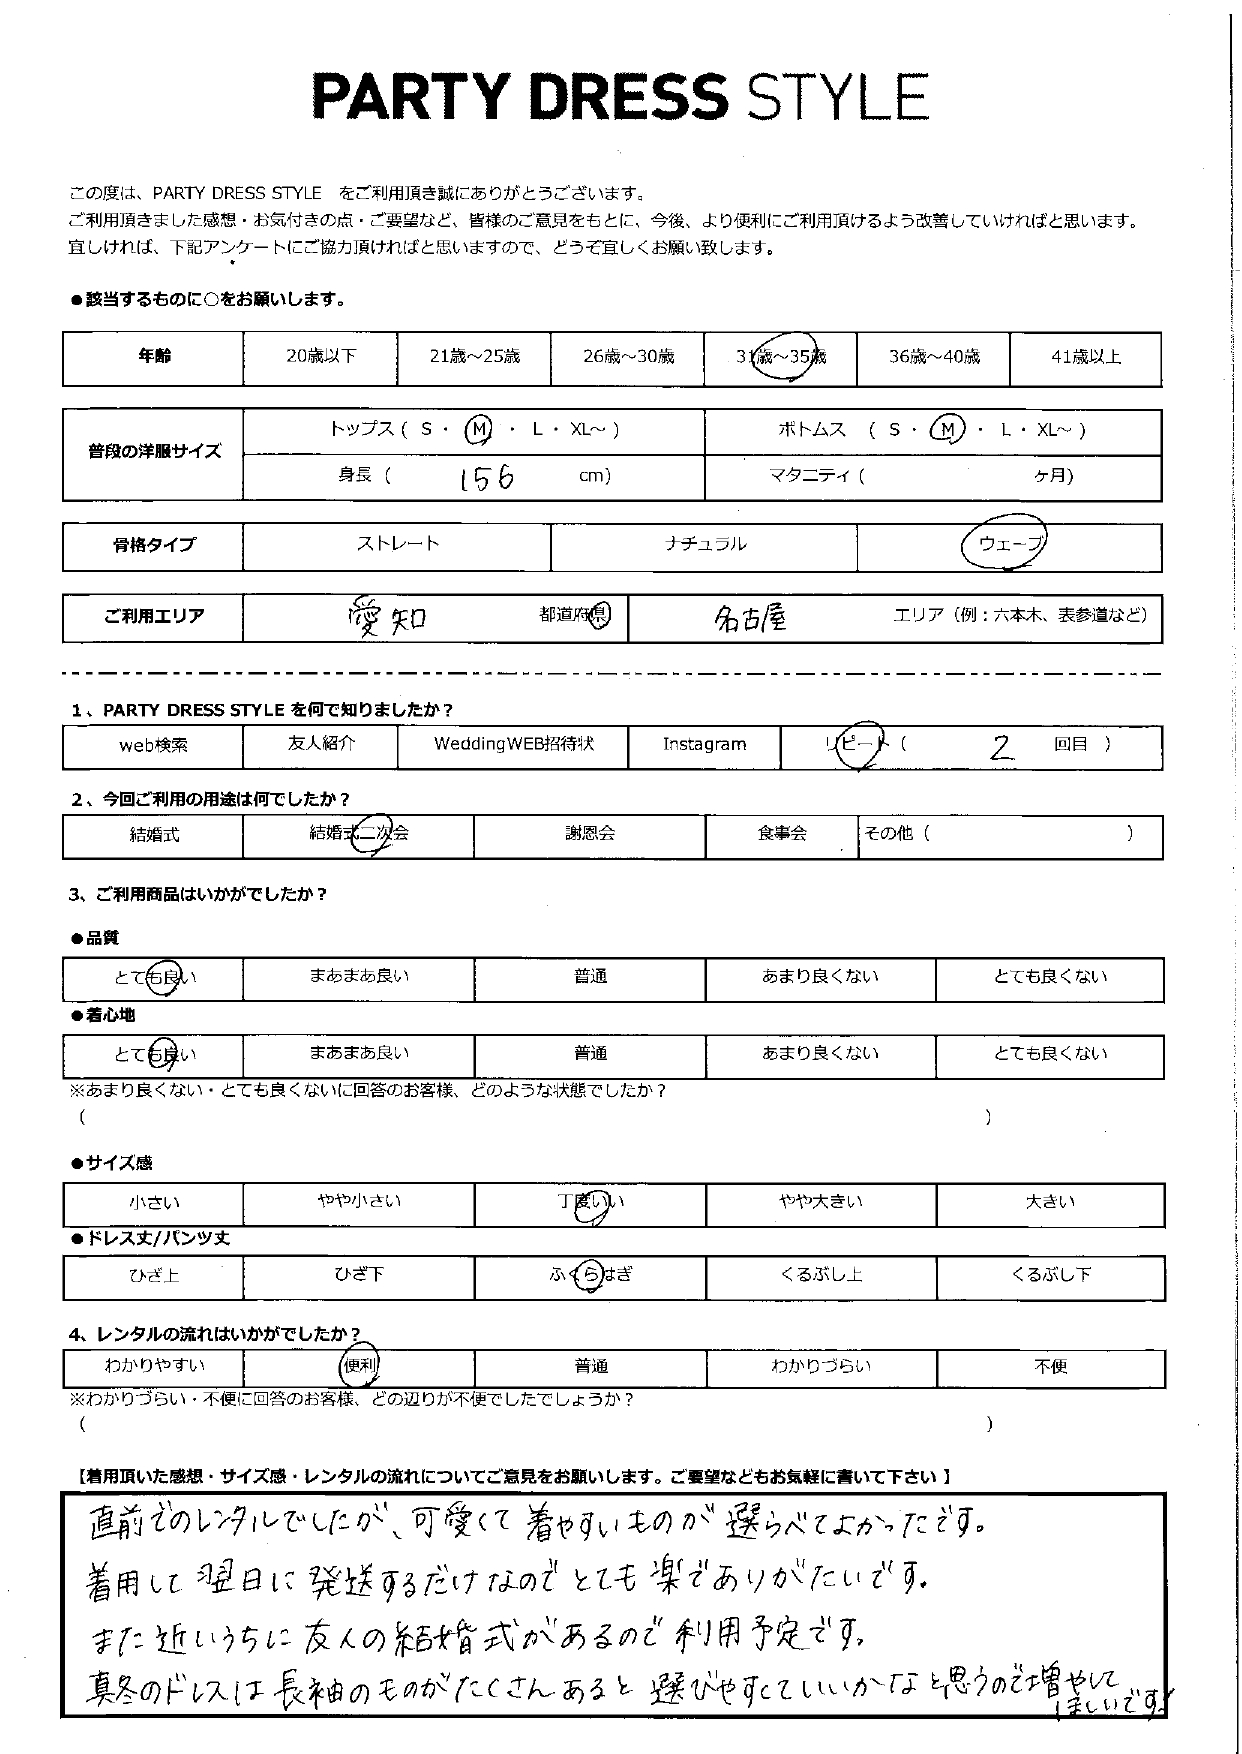 PARTY DRESS STYLE
この度は、PARTY DRESS STYLE をご利用頂き誠にありがとうございます。
ご利用頂きました感想・お気付きの点・ご要望など、皆様のご意見をもとに、今後、より便利にご利用頂けるよう改善していければと思います。
宜しければ、下記アンケートにご協力頂ければと思いますので、どうぞ宜しくお願い致します。
●該当するものに○をお願いします。
年齢 20歳以下 21歳～25歳 26歳～30歳 31歳～35歳 36歳～40歳 41歳以上
普段の洋服サイズ トップス ( S ・ M ・ L ・ XL～ ) ボトムス ( S ・ M ・ L ・ XL～ )
身長 ( 156 cm) マタニティ ( ヶ月)
骨格タイプ ストレート ナチュラル ウェーブ
ご利用エリア 愛知 都道府県 名古屋 エリア（例：六本木、表参道など）
1、PARTY DRESS STYLE を何で知りましたか？
web検索 友人紹介 WeddingWEB招待状 Instagram リピート ( 2 回目 )
2、今回ご利用の用途は何でしたか？
結婚式 結婚式二次会 謝恩会 食事会 その他 ( )
3、ご利用商品はいかがでしたか？
●品質
とても良い まあまあ良い 普通 あまり良くない とても良くない
●着心地
とても良い まあまあ良い 普通 あまり良くない とても良くない
※あまり良くない・とても良くないに回答のお客様、どのような状態でしたか？
( )
●サイズ感
小さい やや小さい 丁度いい やや大きい 大きい
●ドレス丈/パンツ丈
ひざ上 ひざ下 ふくらはぎ くるぶし上 くるぶし下
4、レンタルの流れはいかがでしたか？
わかりやすい 便利 普通 わかりづらい 不便
※わかりづらい・不便に回答のお客様、どの辺りが不便でしたでしょうか？
( )
【着用頂いた感想・サイズ感・レンタルの流れについてご意見をお願いします。ご要望などもお気軽に書いて下さい】
直前でのレンタルでしたが、可愛くて着やすいものが選らべてよかったです。
着用して翌日に発送するだけなのでとても楽でありがたいです。
また近いうちに友人の結婚式があるので利用予定です。
真冬のドレスは長袖のものがたくさんあると選びやすくていいかなと思うので増やして
ほしいです!